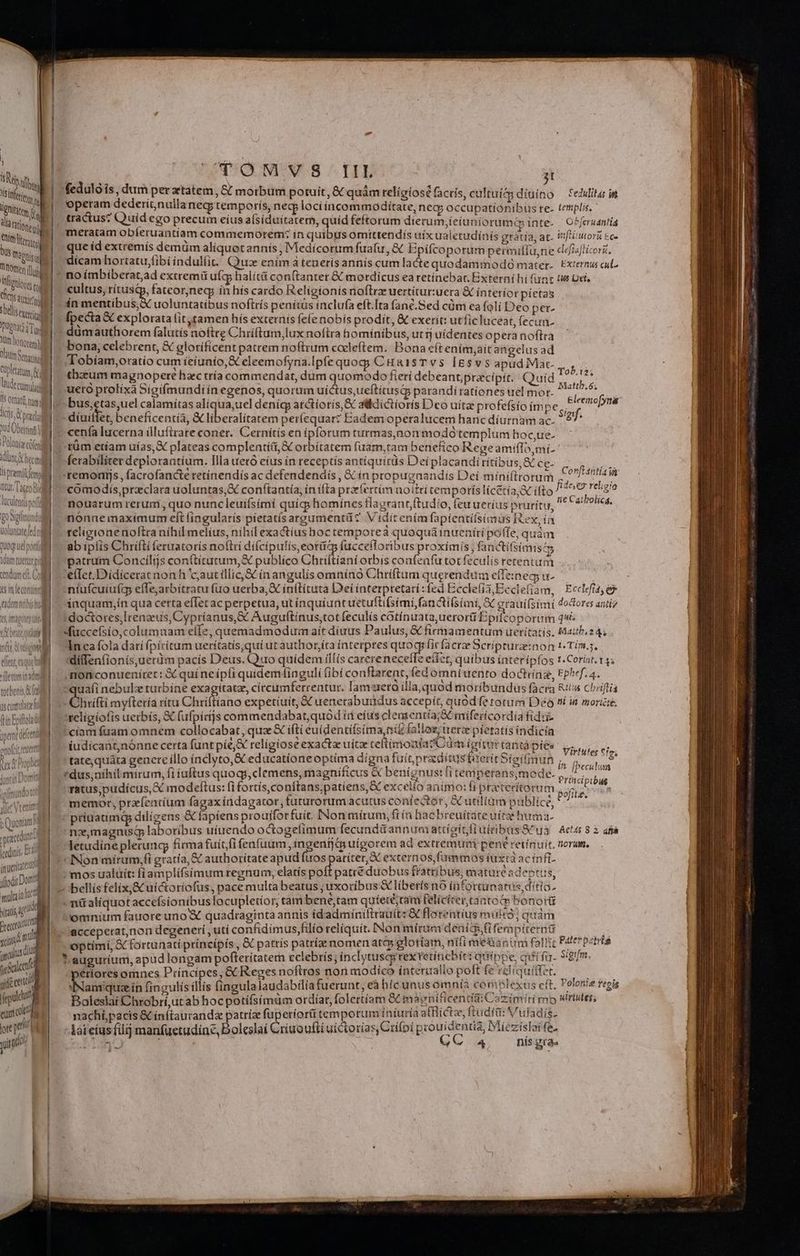 TOMVS III. 31
seduló is, dum per ætatem, & morbum potuit, & quàm religiosè sacris, cultuiq; diuino
operam dederit, nulla neq; temporis, neq; loci incommoditate, neq; occupationibus re-
tractus? Quid ego precum eius assiduitatem, quid festorum dierum, ieiuniorumq; inte-
meratam obseruantiam commemorem? in quibus omittendis uix ualetudinis gratia, at-
que id extremis demùm aliquot annis, Medicorum suasu, & Episcoporum permissu, ne
dicam hortatu, sibi indulsit. Quæ enim à teneris annis cum lacte quodammodò mater-
no imbiberat, ad extremũ usq; halitũ constanter & mordicus ea retinebat. Externi hi sunt
cultus, ritusq;, fateor, neq; in his cardo Religionis nostræ uertitur: uera & interior pietas
in mentibus, & uoluntatibus nostris penitùs inclusa est. Ita sanè. Sed cùm ea soli Deo per-
specta & explorata sit, tamen his externis sese nobis prodit, & exerit: ut sic luceat, secun-
dùm authorem salutis nostræ Christum, lux nostra hominibus, ut ij uidentes opera nostra
bona, celebrent, & glorificent patrem nostrum cœlestem. Bona est enim, ait angelus ad
Tobiam, oratio cum ieiunio, & eleemosyna. Ipse quoq; CHRISTVS IESVS apud Mat-
thæum magnopere hæc tria commendat, dum quomodo fieri debeant, præcipit. Quid
uerò prolixà Sigismundi in egenos, quorum uictus, uestitusq; parandi rationes uel mor-
bus, ætas, uel calamitas aliqua, uel deniq; arctioris, & addictioris Deo uitæ professio impe-
diuisset, beneficentià, & liberalitatem persequar? Eadem opera lucem hanc diurnam ac-
censa lucerna illustrare coner. Cernitis en ipsorum turmas, non modò templum hoc, ue-
rùm etiam uias, & plateas complentiũ, & orbitatem suam, tam benefico Rege amisso, mi-
serabiliter deplorantium. Illa uerò eius in receptis antiquitùs Dei placandi ritibus, & ce-
remonijs, sacrosanctè retinendis ac defendendis, & in propugnandis Dei ministrorum
cõmodis, præclara uoluntas, & constantia, in ista præsertim nostri temporis licẽtia, & isto
nouarum rerum, quo nunc leuissimi quiq; homines flagrant, studio, seu uerius pruritu,
nónne maximum est singularis pietatis argumentũ? Vidit enim sapientissimus Rex, in
religione nostra nihil melius, nihil exactius hoc tempore à quoquã inueniri posse, quàm
ab ipsis Christi seruatoris nostri discipulis, eorũq; successoribus proximis, sanctissimisq;
patrum Concilijs constitutum, & publico Christiani orbis consensu tot seculis retentum
esset. Didicerat non hîc, aut illîc, & in angulis omninò Christum quærendum esse: neq; u-
niuscuiusq; esse, arbitratu suo uerba, & instituta Dei interpretari: sed Ecclesiã, Ecclesiam,
inquam, in qua certa esset ac perpetua, ut inquiunt uetustissimi, sanctissimi, & grauissimi
doctores, Irenæus, Cyprianus, & Augustinus, tot seculis cõtinuata, uerorũ Episcoporum
successio, columnam esse, quemadmodum ait diuus Paulus, & firmamentum ueritatis.
In ea sola dari spiritum ueritatis, qui ut author, ita interpres quoq; sit sacræ Scripturæ: non
dissensionis, uerùm pacis Deus. Quo quidem illis carere necesse esset, quibus inter ipsos
non conueniret: & qui ne ipsi quidem singuli sibi constarent, sed omni uento doctrinæ,
quasi nebulæ turbine exagitatæ, circumferrentur. Iam uerò illa, quòd moribundus sacra
Christi mysteria ritu Christiano expetiuit, & uenerabundus accepit, quòd se totum Deo
religiosis uerbis, & suspirijs commendabat, quòd in eius clementia, & misericordia fidu-
ciam suam omnem collocabat, quæ & isti euidentissima, nisi fallor, ueræ pietatis indicia
iudicant, nónne certa sunt piè, & religiosè exactæ uitæ testimonia? Cùm igitur tanta pie-
tate, quâta genere illo inclyto, & educatione optima digna fuit, præditus fuerit Sigismun-
dus, nihil mirum, si iustus quoq;, clemens, magnificus & benignus: si temperans, mode-
ratus, pudicus, & modestus: si fortis, constans, patiens, & excelso animo: si præteritorum
memor, præsentium sagax indagator, futurorum acutus coniector, & utilium publicè,
priuatimq; diligens & sapiens prouisor fuit. Non mirum, si in hac breuitate uitæ huma-
næ, magnisq; laboribus uiuendo octogesimum secundũ annum attigit, si uiribus & ua-
letudine plerunq; firma fuit, si sensuum, ingenijq; uigorem ad extremum penè retinuit.
Non mirum, si gratia, & authoritate apud suos pariter, & externos, summos iuxtà ac infi-
mos ualuit: si amplissimum regnum, elatis post patrẽ duobus fratribus, maturè adeptus,
bellis felix, & uictoriosus, pace multa beatus, uxoribus & liberis nõ infortunatus, ditio-
nũ aliquot accessionibus locupletior, tàm bene, tam quietè, tam feliciter, tantoq; bonorũ
omnium fauore uno & quadraginta annis id administrauit: & florentius multò, quàm
acceperat, non degeneri, uti confidimus, filio reliquit. Non mirum deniq;, si sempiternũ
optimi, & fortunati principis, & patris patriæ nomen atq; gloriam, nisi me animum fallit
augurium, apud longam posteritatem celebris, inclytusq; rex retinebit: quippe, qui su-
periores omnes Principes, & Reges nostros non modico interuallo post se reliquisset.
Nam quæ in singulis illis singula laudabilia fuerunt, ea hic unus omnia complexus est.
Boleslai Chrobri, ut ab hoc potissimùm ordiar, solertiam & magnificentiã: Cazimiri mo
nachi, pacis & instaurandæ patriæ superiorũ temporum iniuria afflictæ, studiũ: Vladis-
lai eius filij mansuetudinẽ, Boleslai Criuousti uictorias, Crispi prouidentiã, Miezislai se-
CC 4 nis gra-
Sedulitas in
templis.
Obseruantia
institutorũ Ec-
clesiasticorũ.
Externus cul-
tus Dei.
Tob. 12.
Matth. 6.
Eleemosyna
Sigis.
Constantia in
fide, & religio
ne Catholica.
Ecclesia, &
doctores antiq
qui.
Matth. 24.
1. Tim. 3.
1. Corint. 14.
Ephes. 4.
Ritus christia
ni in moriẽte.
Virtutes Sig.
in speculum
Principibus
positæ.
Actas 82 anno
norum.
Pater patriæ
Sigism.
Poloniæ regis
uirtutes.